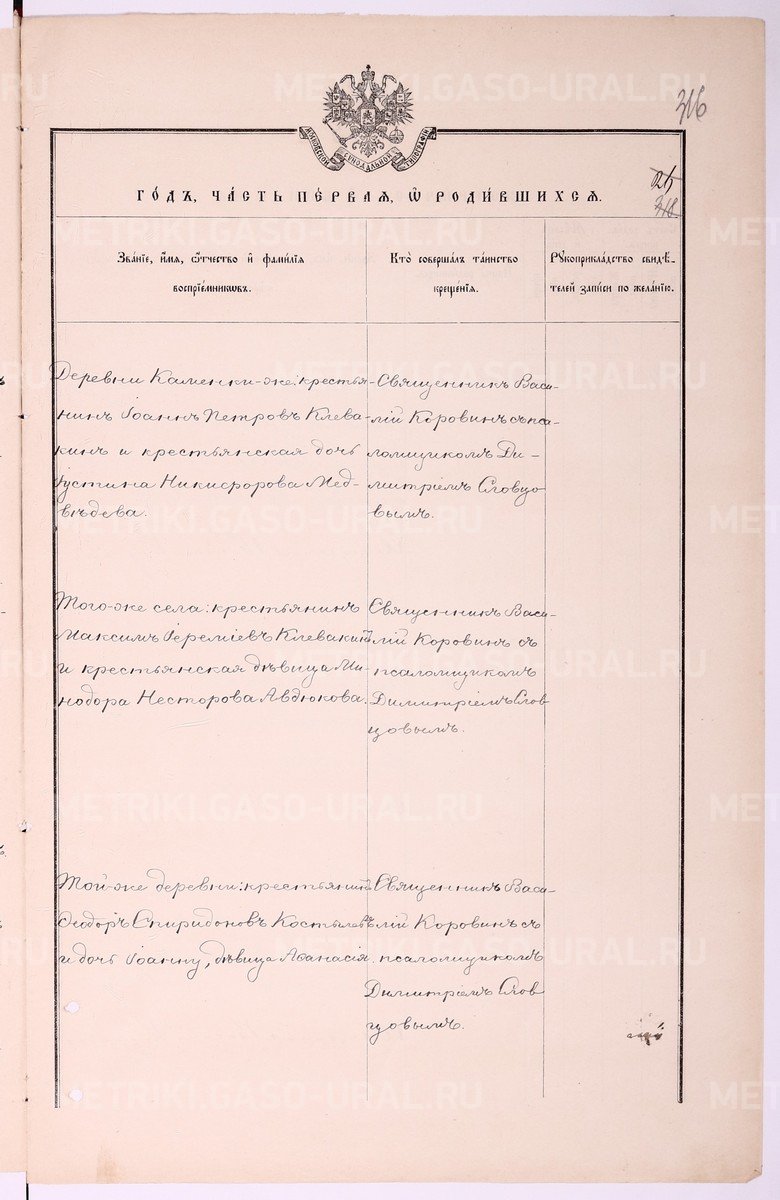 316
МОСКОВСКОЙ СѴНОДАЛЬНОЙ ТИПОГРАФІИ
26
318
ГО́ДЪ, ЧА́СТЬ ПЕ́РВАЯ, Ѿ РОДИ́ВШИХСЯ.
Зва́нїе, и́мя, ѻ́тчество и҆ фами́лїя
воспрїе́мниковъ.
Кто̀ соверша́лъ та́инство
креще́нїя.
Рꙋкоприкла́дство свидѣ́-
телей за́писи по жела́нїю.
Деревни Каменки-же: крестья-
нинъ Іоаннъ Петровъ Клева-
кинъ и крестьянская дочь
Іустина Никифорова Мед-
вѣдева.
Священникъ Васи-
лій Коровинъ съ пса-
ломщикомъ Ди-
митріемъ Словцо-
вымъ.
Того-же села: крестьянинъ
Максимъ Іереміевъ Клевакинъ
и крестьянская дѣвица Ми-
нодора Несторова Авдюкова.
Священникъ Васи-
лій Коровинъ съ
псаломщикомъ
Димитріемъ Слов
цовымъ.
Той-же деревни: крестьянинъ
Ѳеодоръ Спиридоновъ Костылевъ
и дочь Іоанну, дѣвица Аѳанасія.
Священникъ Васи-
лій Коровинъ съ
псаломщикомъ
Димитріемъ Слов
цовымъ.
METRIKI.GASO-URAL.RU